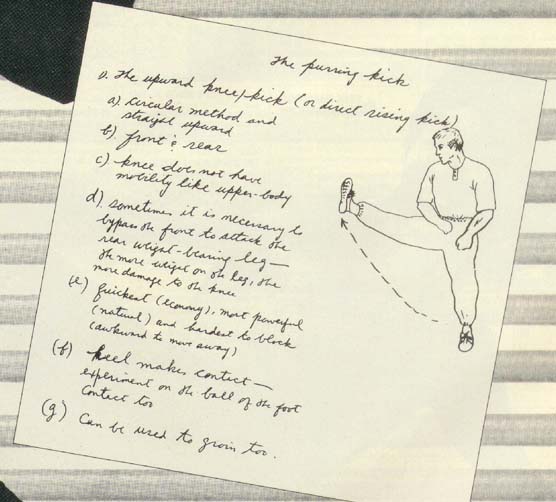 The purring kick
1. The upward knee/kick (or direct rising kick)
a). Circular method and
straight upward
b) front & rear
c) knee does not have
mobility like upper-body
d). sometimes it is necessary to
bypass the front to attack the
rear weight-bearing leg —
the more weight on the leg, the
more damage to the knee
(e) quickest (economy), most powerful
(natural) and hardest to block
(awkward to move away)
(f) heel makes contact —
experiment on the ball of the foot
contact too
(g) Can be used to groin too.